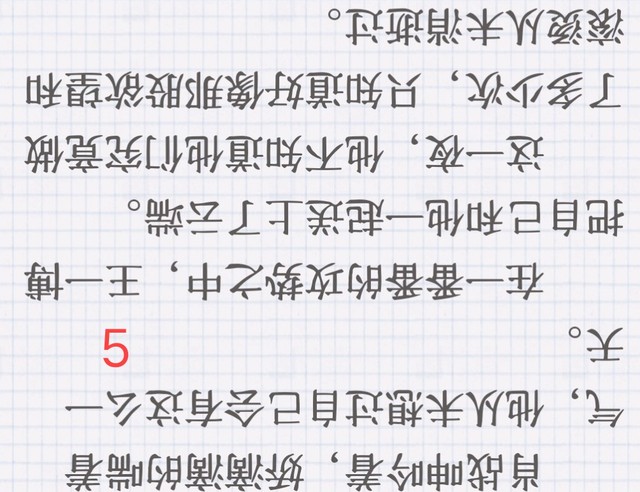 肖战呻吟着，娇滴滴的喘着
气，他从未想过自己会有这么一
天。
5
在一番番的攻势之中，王一博
把自己和他一起送上了云端。
这一夜，他不知道他们究竟做
了多少次，只知道好像那股欲望和
滚烫从未消逝过。